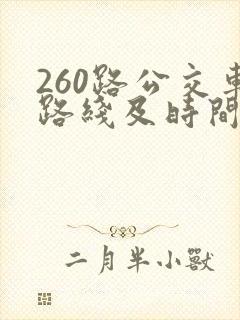 260路公交車
路綫及時間
二月半小獸